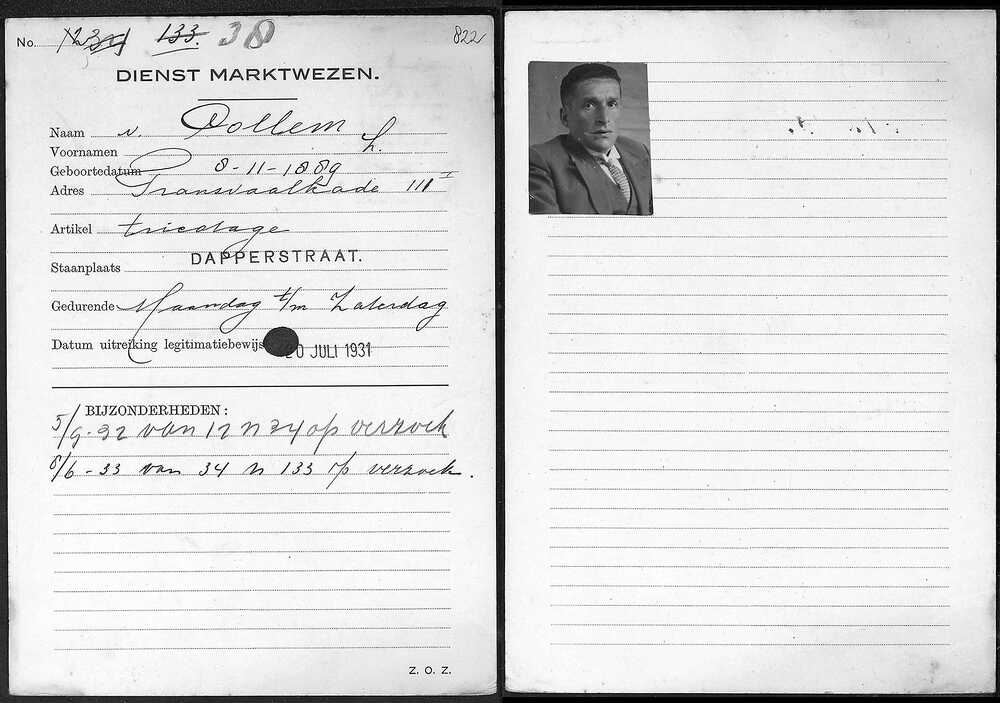 No. 12 34 133. 38 822
DIENST MARKTWEZEN.
Naam v. Dollem
Voornamen L.
Geboortedatum 8-11-1889
Adres Transvaalkade 111 I
Artikel tricotage
Staanplaats DAPPERSTRAAT.
Gedurende Maandag t/m Zaterdag
Datum uitreiking legitimatiebewijs 20 JULI 1931
BIJZONDERHEDEN:
5/9-32 van 12 n 34 op verzoek
8/6-33 van 34 n 133 op verzoek.
Z. O. Z.